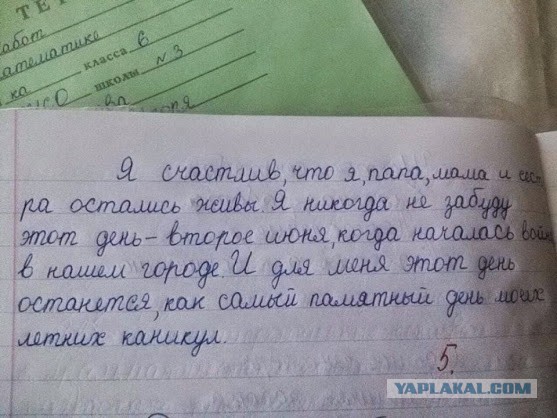 ТЕТ
работ
математике
ка класса 6
школы №3
Я счастлив, что я, папа, мама и сест-
ра остались живы. Я никогда не забуду
этот день - второе июня, когда началась война
в нашем городе. И для меня этот день
останется, как самый памятный день моих
летних каникул.
5.
YAPLAKAL.COM